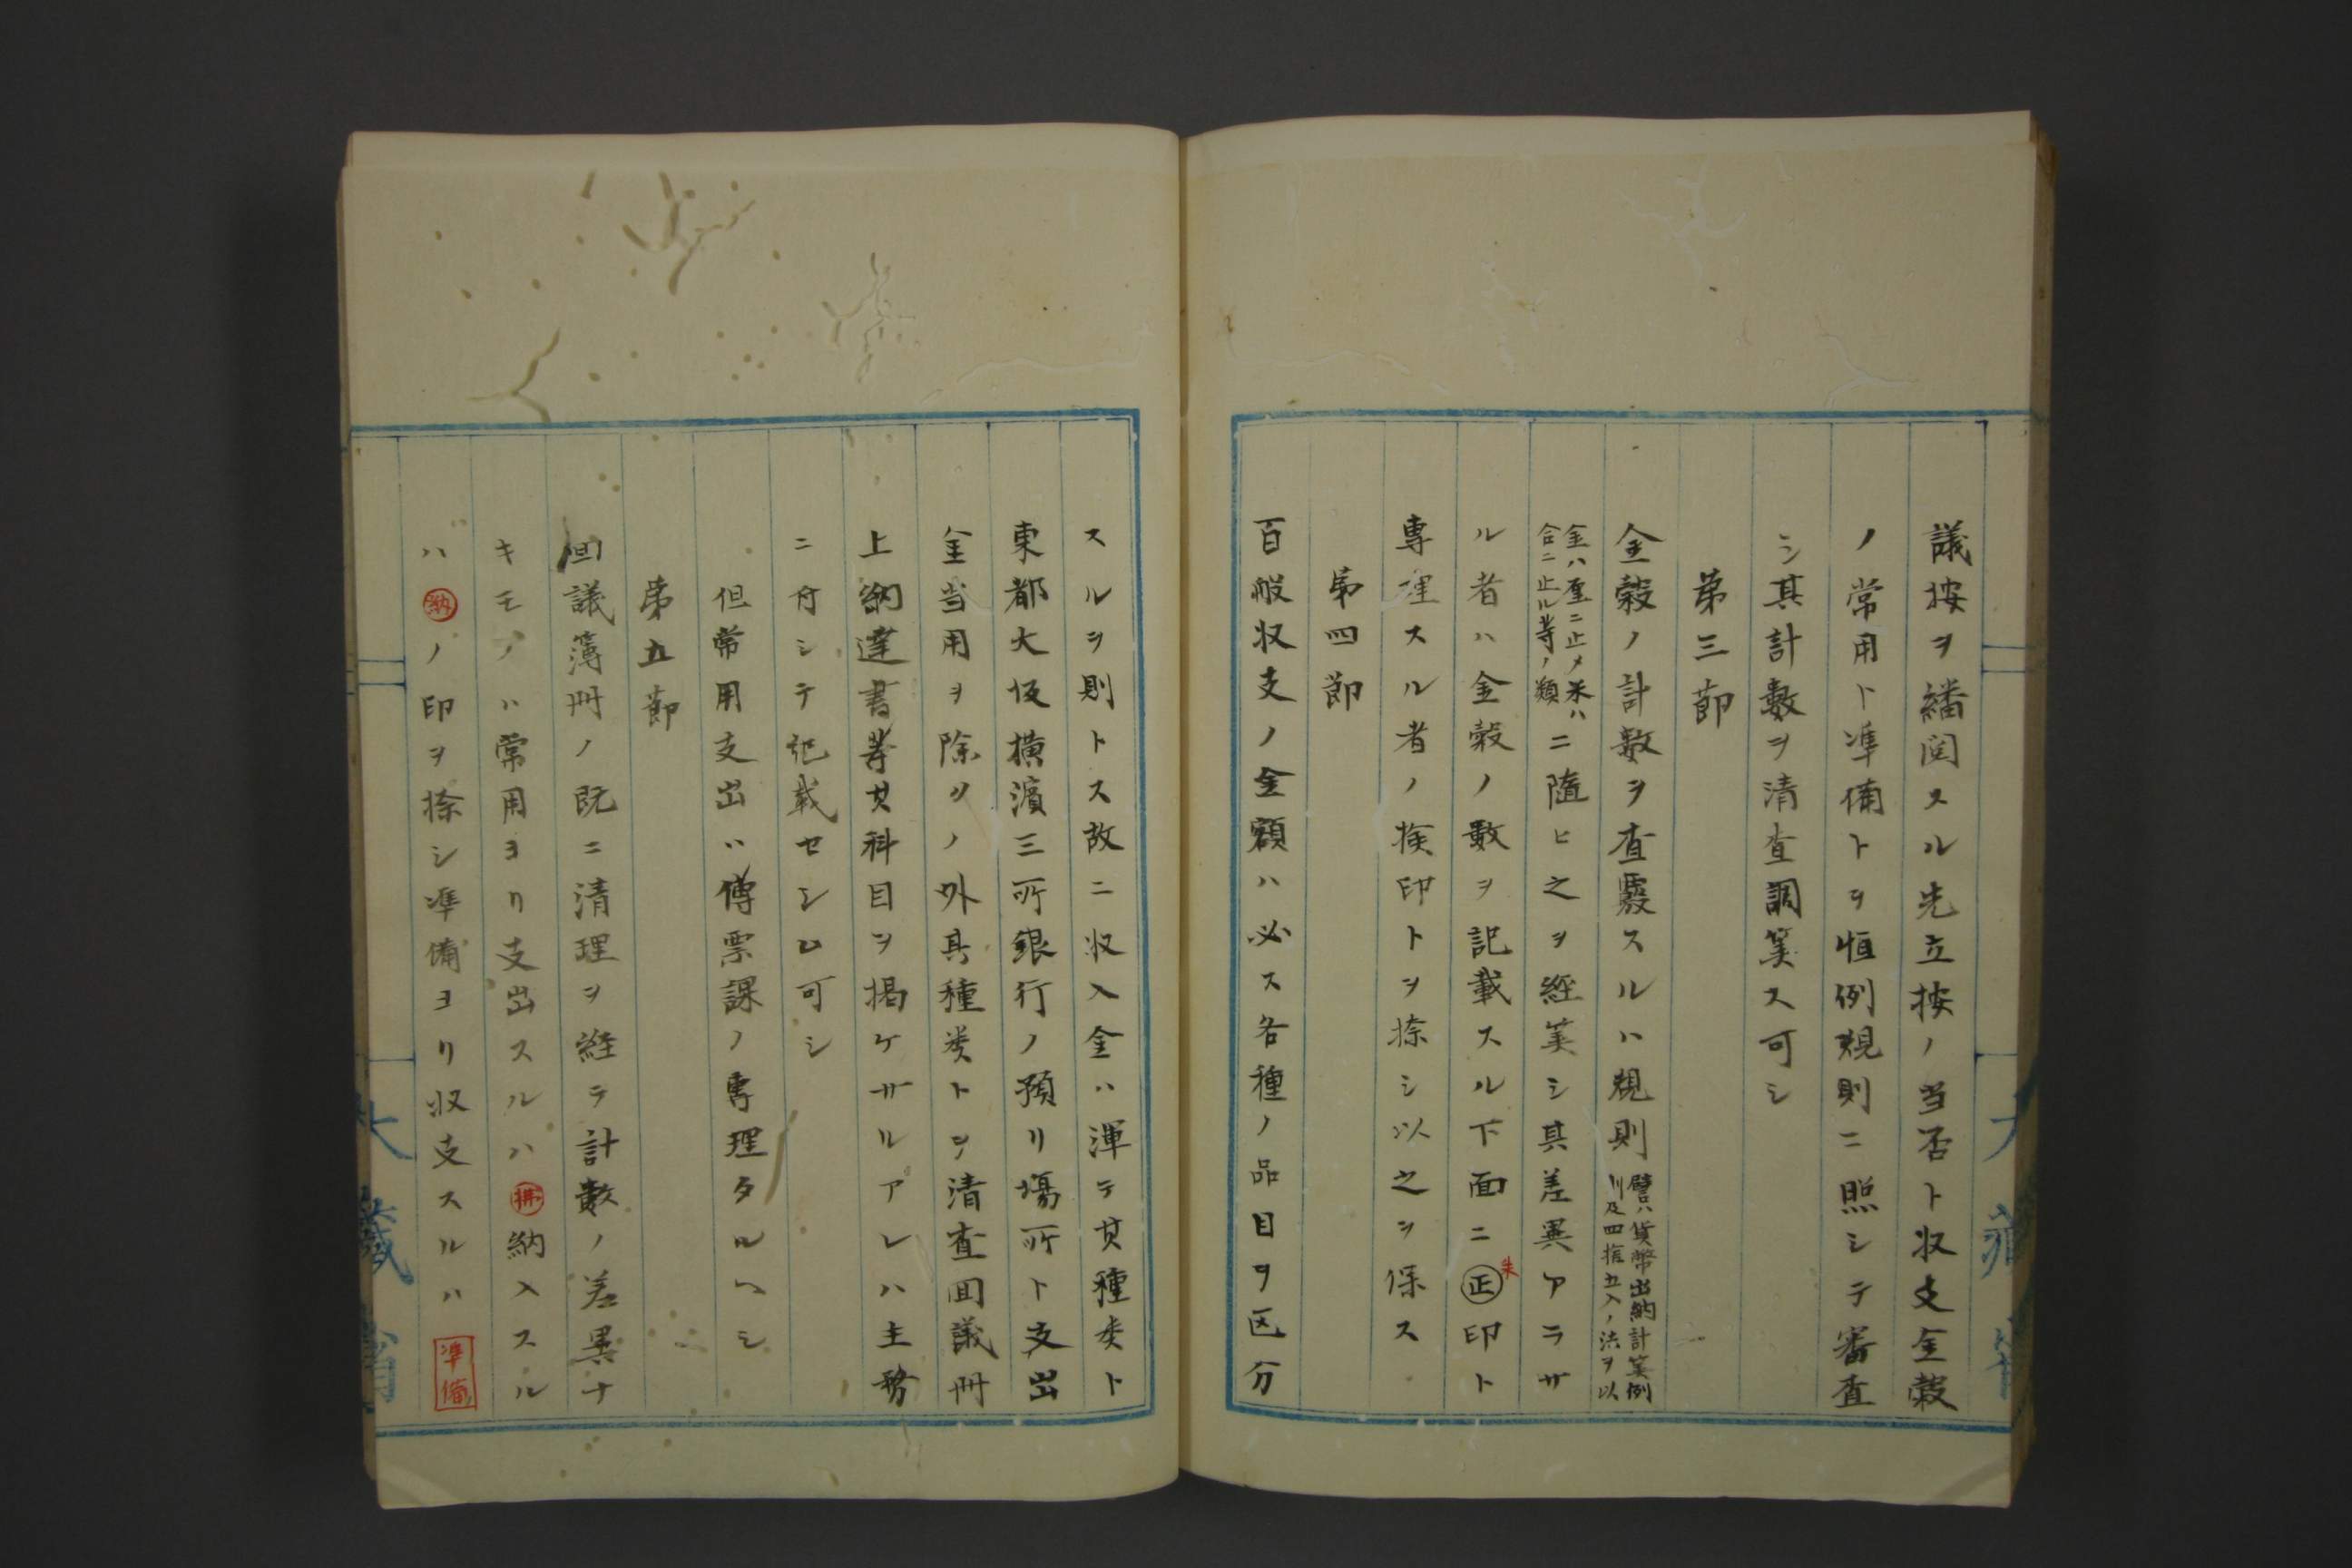 議按ヲ繙閲スル先立按ノ当否ト収支金穀
ノ常用ト準備トヲ恒例規則ニ照シテ審査
シ其計數ヲ清査調筭ス可シ
第三節
金穀ノ計数ヲ査覈スルハ規則
譬ハ貨幣出納計筭例
川及四捨五入ノ法ヲ以
金ハ厘ニ止メ米ハ
合ニ止ル等ノ類
ニ隨ヒ之ヲ經筭シ其差異アラサ
ル者ハ金穀ノ數ヲ記載スル下面ニ正印ト
朱
専理スル者ノ検印トヲ捺シ以之ヲ保ス
第四節
百般収支ノ金額ハ必ス各種ノ品目ヲ区分
スルヲ則トス故ニ収入金ハ渾テ其種类ト
東都大坂横濱三所銀行ノ預リ場所ト支出
金当用ヲ除クノ外其種类トヲ清査回議冊
上納達書等其科目ヲ掲ケサルアレハ主務
ニ付シテ記載セシム可シ
但常用支出ハ傳票課ノ専理タルヘシ
第五節
回議簿冊ノ既ニ清理ヲ経テ計數ノ差異ナ
キモノハ常用ヨリ支出スルハ拂納入スル
ハ納ノ印ヲ捺シ準備ヨリ収支スルハ準備
大藏省
大藏省